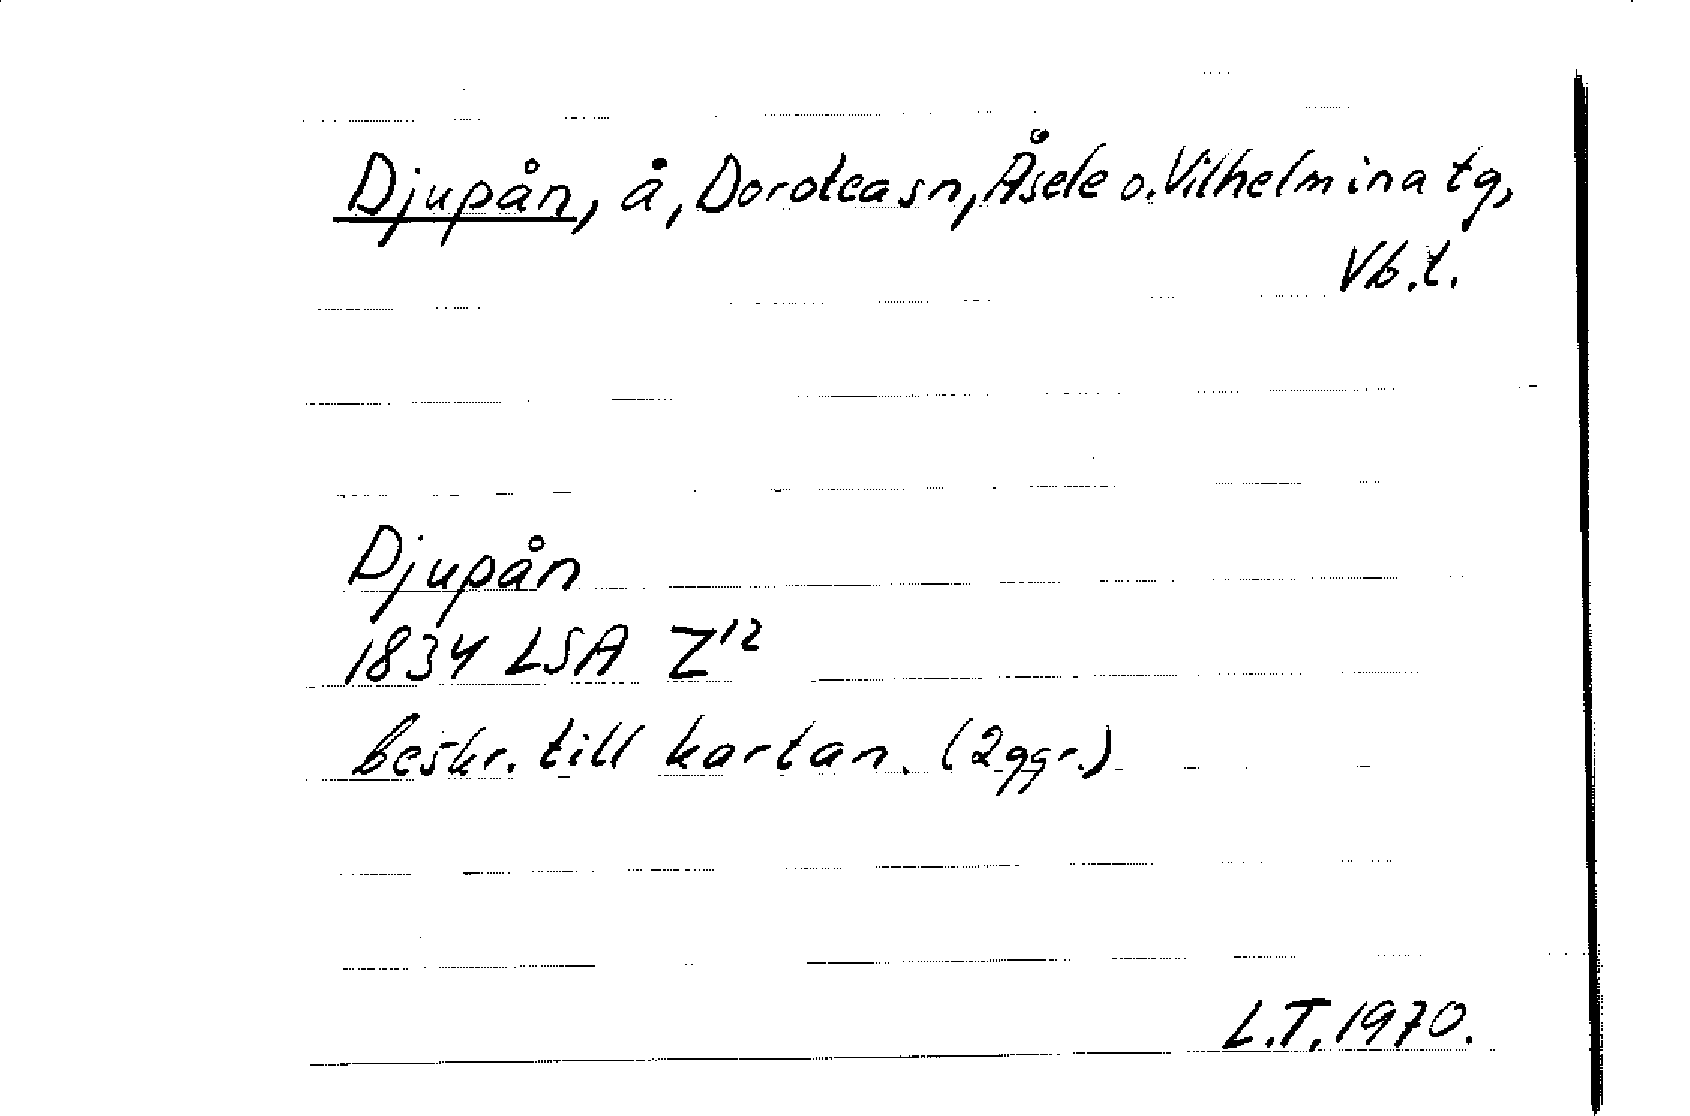 Djupån, å, Dorotea sn, Åsele o. Vilhelmina tg,
Vb.l.
Djupån
1834 LSA Z12
beskr. till kartan. (2ggr.)
L.T. 1970.